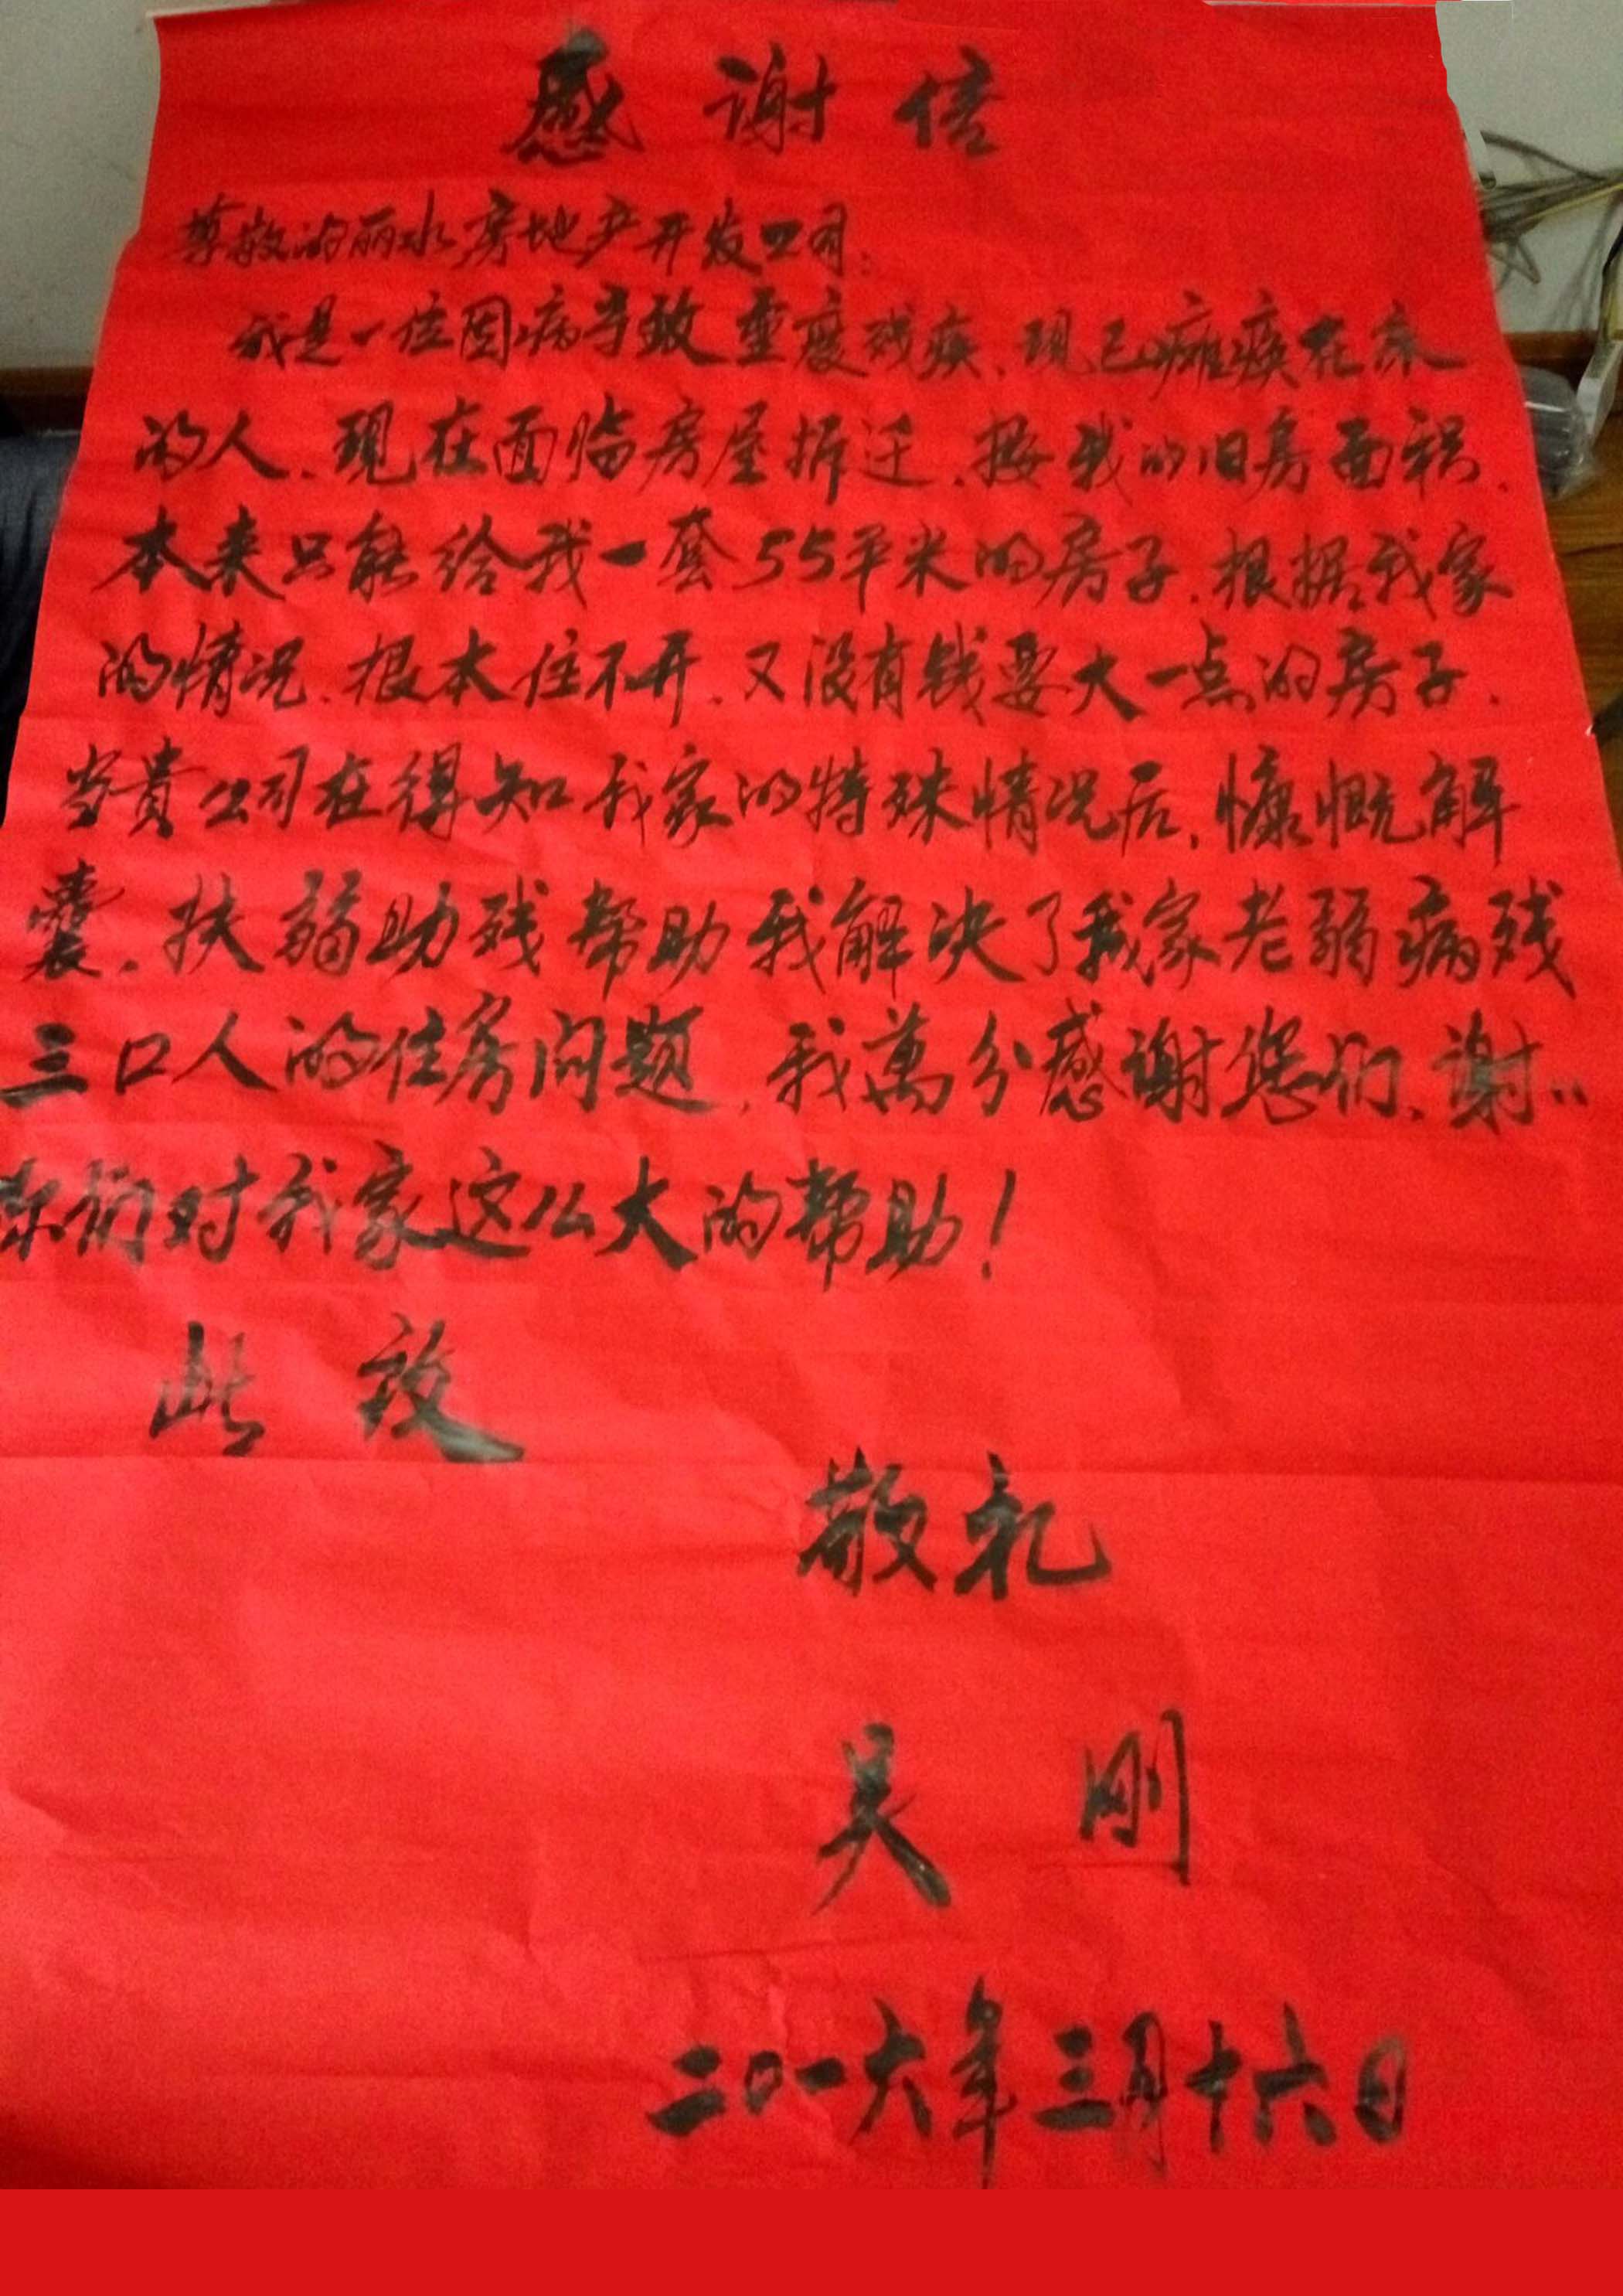 感谢信
尊敬的丽水房地产开发公司:
我是一位因病导致重度残疾、现已瘫痪在床
的人、现在面临房屋拆迁、按我的旧房面积、
本来只能给我一套55平米的房子、根据我家
的情况、根本住不开、又没有钱要大一点的房子、
当贵公司在得知我家的特殊情况后、慷慨解
囊、扶弱助残帮助我解决了我家老弱病残
三口人的住房问题、我萬分感谢您们、谢〃
你们对我家这么大的帮助!
此致
敬礼
吴刚
二0一六年三月十六日